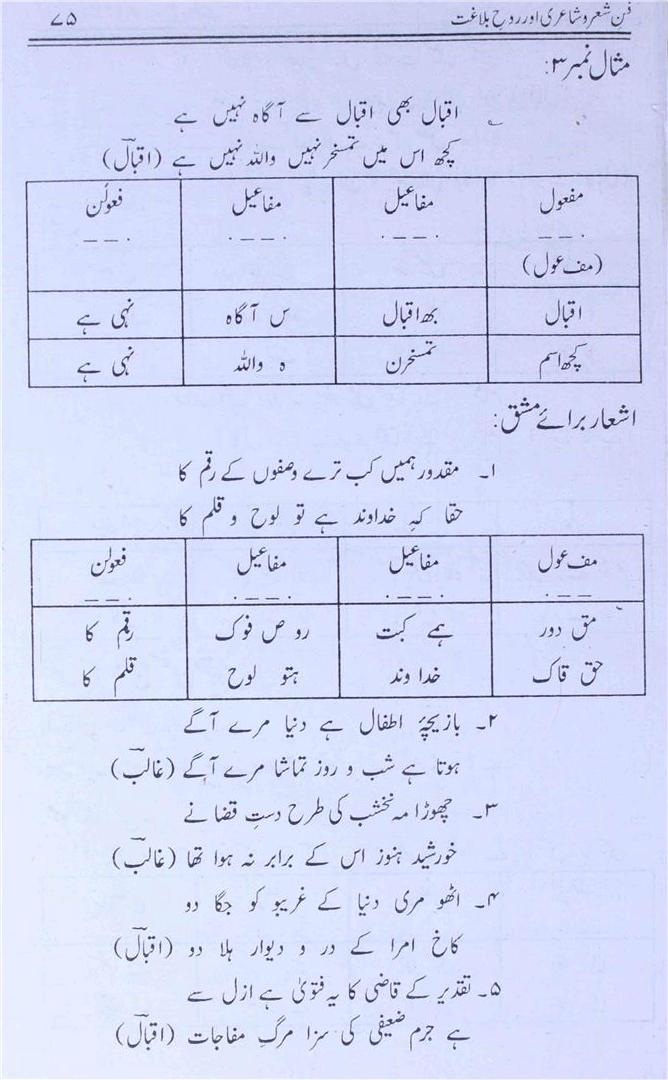 فنِ شعر و شاعری اور روحِ بلاغت ۷۵
مثال نمبر ۳:
اقبال بھی اقبال سے آگاہ نہیں ہے
کچھ اس میں تمسخر نہیں واللہ نہیں ہے (اقبالؔ)
مفعول مفاعیل مفاعیل فعولن
– – · · – – · · – – · · – –
(مف عول)
اقبال بھ اقبال س آگاہ نہی ہے
کچھ اسم تمسخرن ہ واللہ نہی ہے
اشعار برائے مشق:
۱۔ مقدور ہمیں کب ترے وصفوں کے رقم کا
حقا کہ خداوند ہے تو لوح و قلم کا
مف عول مفاعیل مفاعیل فعولن
– – · · – – · · – – · · – –
مق دور ہمے کبت روص فوک رقم کا
حق قاک خداوند ہتو لوح قلم کا
۲۔ بازیچۂ اطفال ہے دنیا مرے آگے
ہوتا ہے شب و روز تماشا مرے آگے (غالبؔ)
۳۔ چھوڑا مہ نخشب کی طرح دستِ قضا نے
خورشید ہنوز اس کے برابر نہ ہوا تھا (غالبؔ)
۴۔ اٹھو مری دنیا کے غریبو کو جگا دو
کاخ امرا کے در و دیوار ہلا دو (اقبالؔ)
۵۔ تقدیر کے قاضی کا یہ فتویٰ ہے ازل سے
ہے جرم ضعیفی کی سزا مرگِ مفاجات (اقبالؔ)